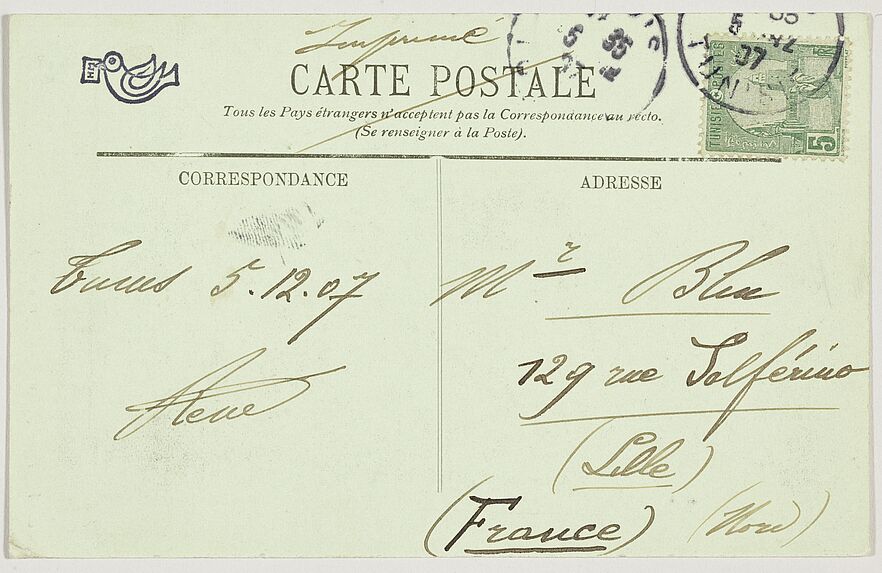 Imprimé
CARTE POSTALE
Tous les Pays étrangers n'acceptent pas la Correspondance au recto.
(Se renseigner à la Poste).
TUNISIE POSTES
5
CORRESPONDANCE
ADRESSE
Tunis 5.12.07
René
Mr Blue
129 rue Solférino
(Lille)
(France) (Nord)